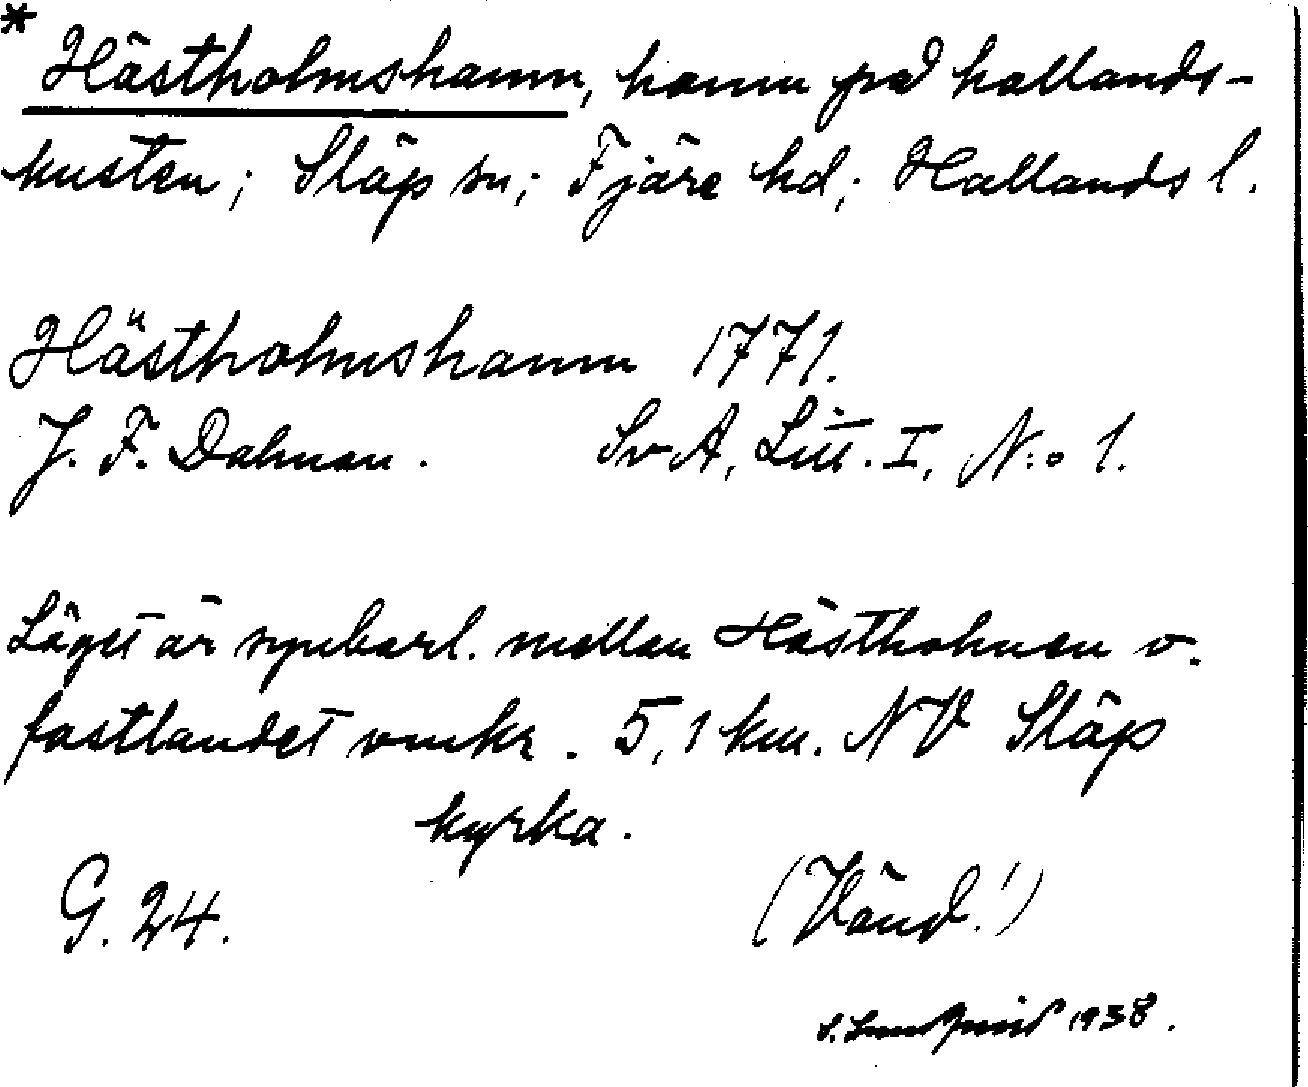 * Hästholmshamn, hamn på hallands-
kusten; Släp sn; Fjäre hd; Hallands l.
Hästholmshamn 1771.
J. F. Dahman. SvA, Litt. I, N:o 1.
Läget är synbarl. mellan Hästholmen o.
fastlandet omkr. 5,1 km. NV Släp
kyrka.
G. 24. (Vänd!)
S. Lundquist 1938.